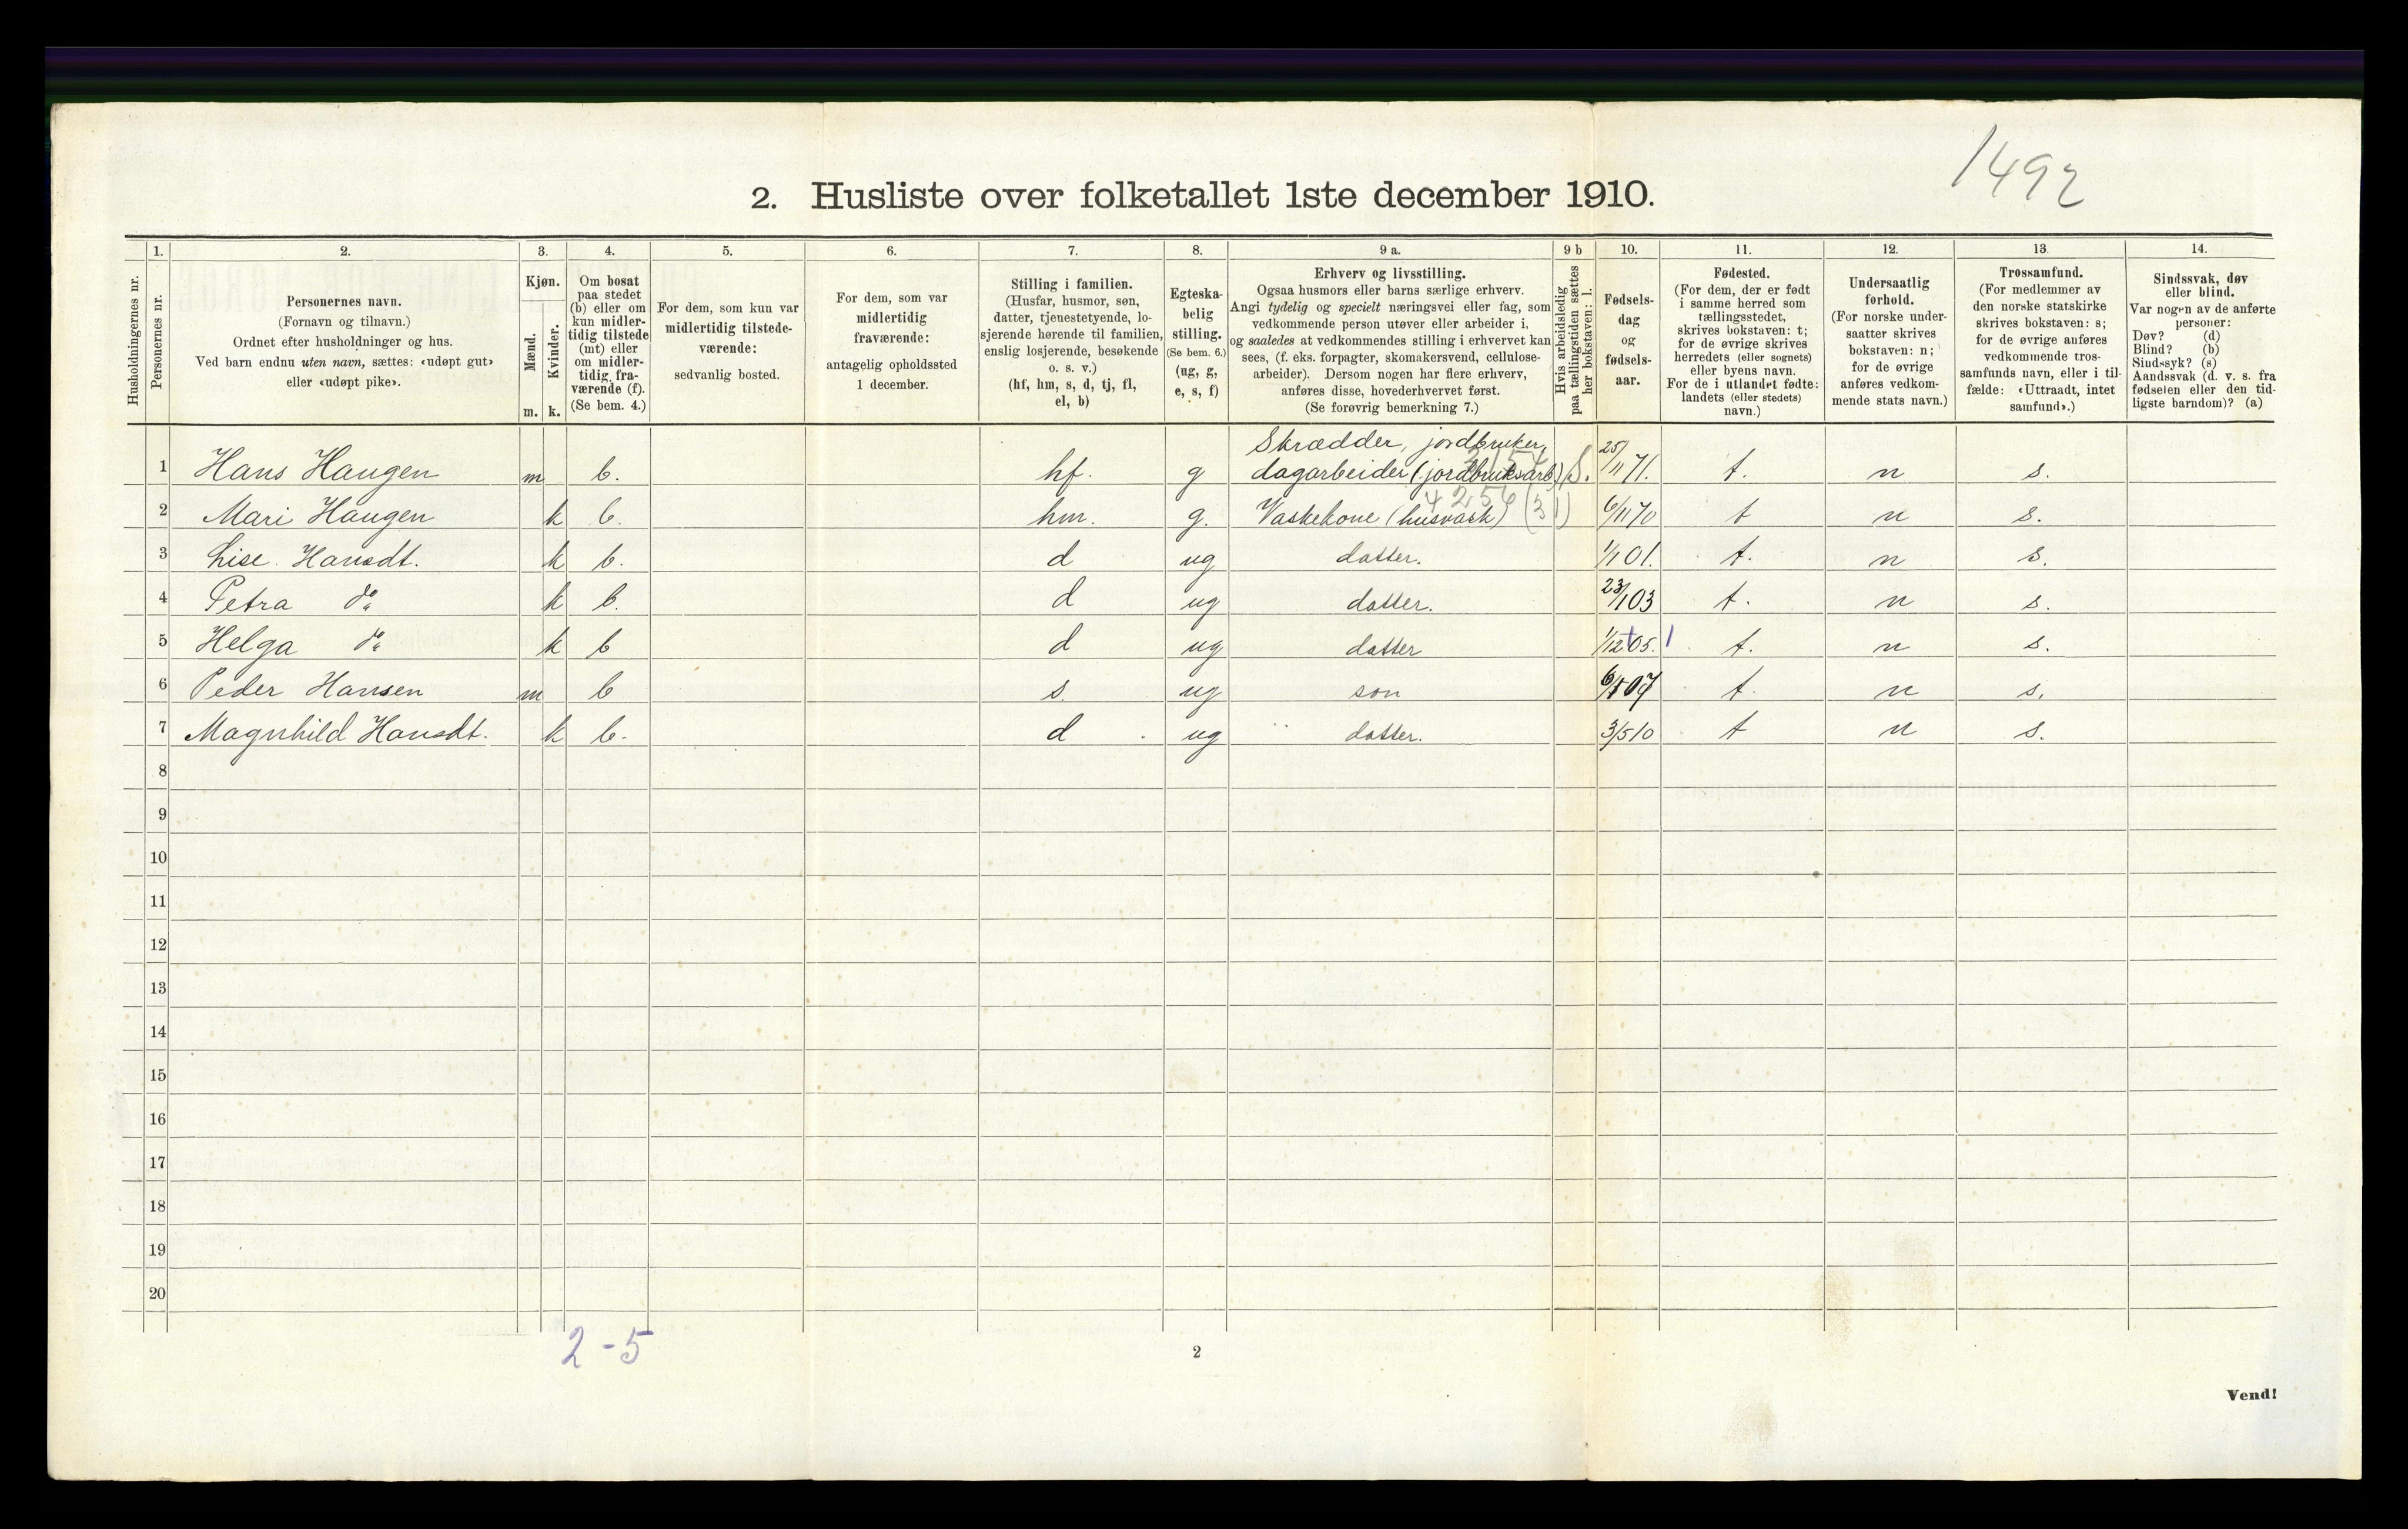 1492
2. Husliste over folketallet 1ste december 1910.
Husholdningernes nr.
1.
Personernes nr.
2.
Personernes navn.
(Fornavn og tilnavn.)
Ordnet efter husholdninger og hus.
Ved barn endnu uten navn, sættes: «udøpt gut»
eller «udøpt pike».
3.
Kjøn.
Mænd.
Kvinder.
m. k.
4.
Om bosat
paa stedet
(b) eller om
kun midler-
tidig tilstede
(mt) eller
om midler-
tidig fra-
værende (f).
(Se bem. 4.)
5.
For dem, som kun var
midlertidig tilstede-
værende:
sedvanlig bosted.
6.
For dem, som var
midlertidig
fraværende:
antagelig opholdssted
1 december.
7.
Stilling i familien.
(Husfar, husmor, søn,
datter, tjenestetyende, lo-
sjerende hørende til familien,
enslig losjerende, besøkende
o. s. v.)
(hf, hm, s, d, tj, fl,
el, b)
8.
Egteska-
belig
stilling.
(Se bem. 6.)
(ug, g,
e, s, f)
9 a.
Erhverv og livsstilling.
Ogsaa husmors eller barns særlige erhverv.
Angi tydelig og specielt næringsvei eller fag, som
vedkommende person utøver eller arbeider i,
og saaledes at vedkommendes stilling i erhvervet kan
sees, (f. eks. forpagter, skomakersvend, cellulose-
arbeider). Dersom nogen har flere erhverv,
anføres disse, hovederhvervet først.
(Se forøvrig bemerkning 7.)
9 b
Hvis arbeidsledig
paa tællingstiden sættes
her bokstaven: l.
10.
Fødsels-
dag
og
fødsels-
aar.
11.
Fødested.
(For dem, der er født
i samme herred som
tællingsstedet,
skrives bokstaven: t;
for de øvrige skrives
herredets (eller sognets)
eller byens navn.
For de i utlandet fødte:
landets (eller stedets)
navn.)
12.
Undersaatlig
førhold.
(For norske under-
saatter skrives
bokstaven: n;
for de øvrige
anføres vedkom-
mende stats navn.)
13.
Trossamfund.
(For medlemmer av
den norske statskirke
skrives bokstaven: s;
for de øvrige anføres
vedkommende tros-
samfunds navn, eller i til-
fælde: «Uttraadt, intet
samfund».)
14.
Sindssvak, døv
eller blind.
Var nogen av de anførte
personer:
Døv? (d)
Blind? (b)
Sindssyk? (s)
Aandssvak (d. v. s. fra
fødselen eller den tid-
ligste barndom)? (a)
Skrædder, jordbruker,
1 Hans Haugen m b. hf. g dagarbeider (jordbruksarb) S. 25/11 71. t. n s.
2 Mari Haugen k b. hm. g. Vaskekone (husvask) 4256 (31) 6/11 70 t n s.
3 Lise Hansdt. k b. d ug datter. 1/1 01. t. n s.
4 Petra do k b. d ug datter. 23/1 03 t. n s.
5 Helga do k b d ug datter 1/12 05. t. n s.
6 Peder Hansen m b s. ug son t. n s.
7 Magnhild Hansdt. k b. d ug datter. 3/5 10 t n s.
8
9
10
11
12
13
14
15
16
17
18
19
20
2-5
2
Vend!